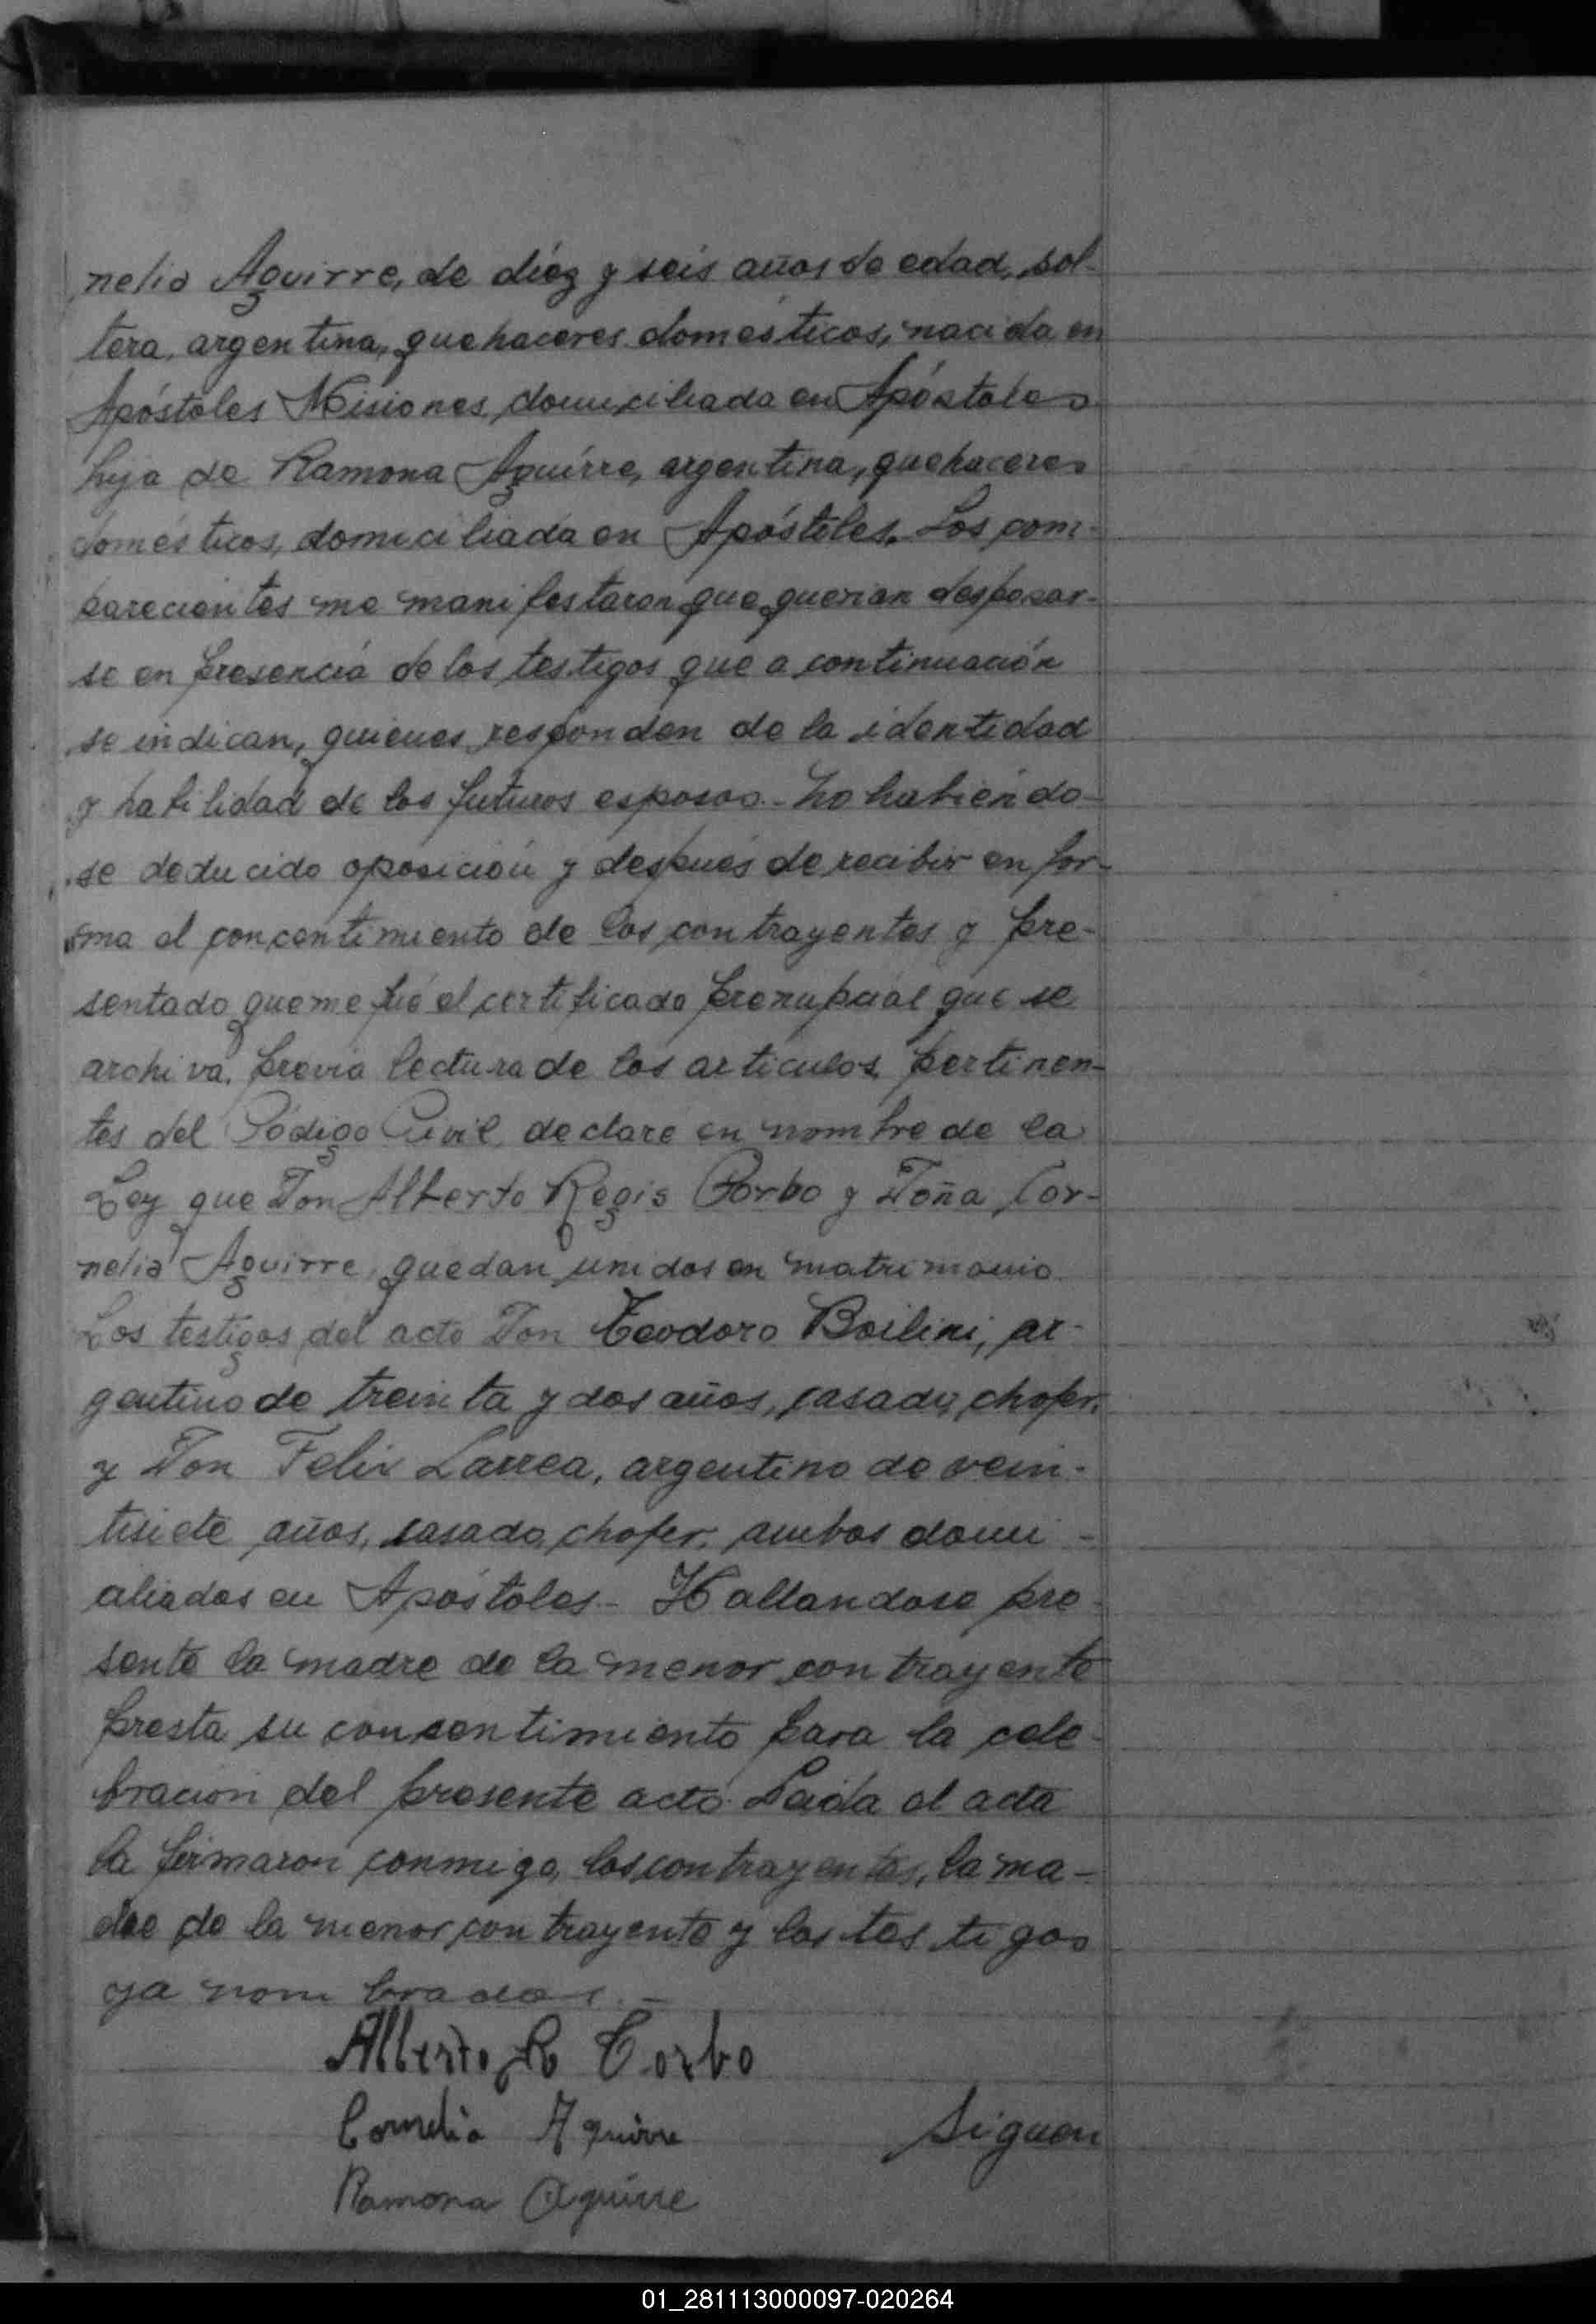 nelia Aguirre, de diéz y seis años de edad, sol-
tera, argentina, quehaceres domésticos, nacida en
Apóstoles Misiones, domiciliada en Apóstoles
hija de Ramona Aguirre, argentina, quehaceres
domésticos, domiciliada en Apóstoles. Los com-
parecientes me manifestaron que querian desposar-
se en presencia de los testigos que a continuación
se indican, quienes responden de la identidad
y habilidad de los futuros esposos.- No habiéndo-
se deducido oposición y después de recibir en for-
ma el concentimiento de los contrayentes y pre-
sentado que me fué el certificado prenupcial que se
archiva, previa lectura de los articulos pertinen-
tes del Código Civil, declare en nombre de la
Ley que Don Alberto Regis Corbo y Doña Cor-
nelia Aguirre, quedan unidos en matrimonio.
Los testigos del acto Don Teodoro Boilini, ar-
gentino de treinta y dos años, casado, chofer,
y Don Felix Larrea, argentino de vein-
tisiete años, casado, chofer, ambos domi-
ciliados en Apóstoles.- Hallandose pre-
sente la madre de la menor contrayente
presta su consentimiento para la cele-
bración del presente acto. Leida el acta
la firmaron conmigo, los contrayentes, la ma-
dre de la menor contrayente y los testigos
ya nombrados.-
Alberto R Corbo
Cornelia Aguirre
Siguen
Ramona Aguirre
01_281113000097-020264